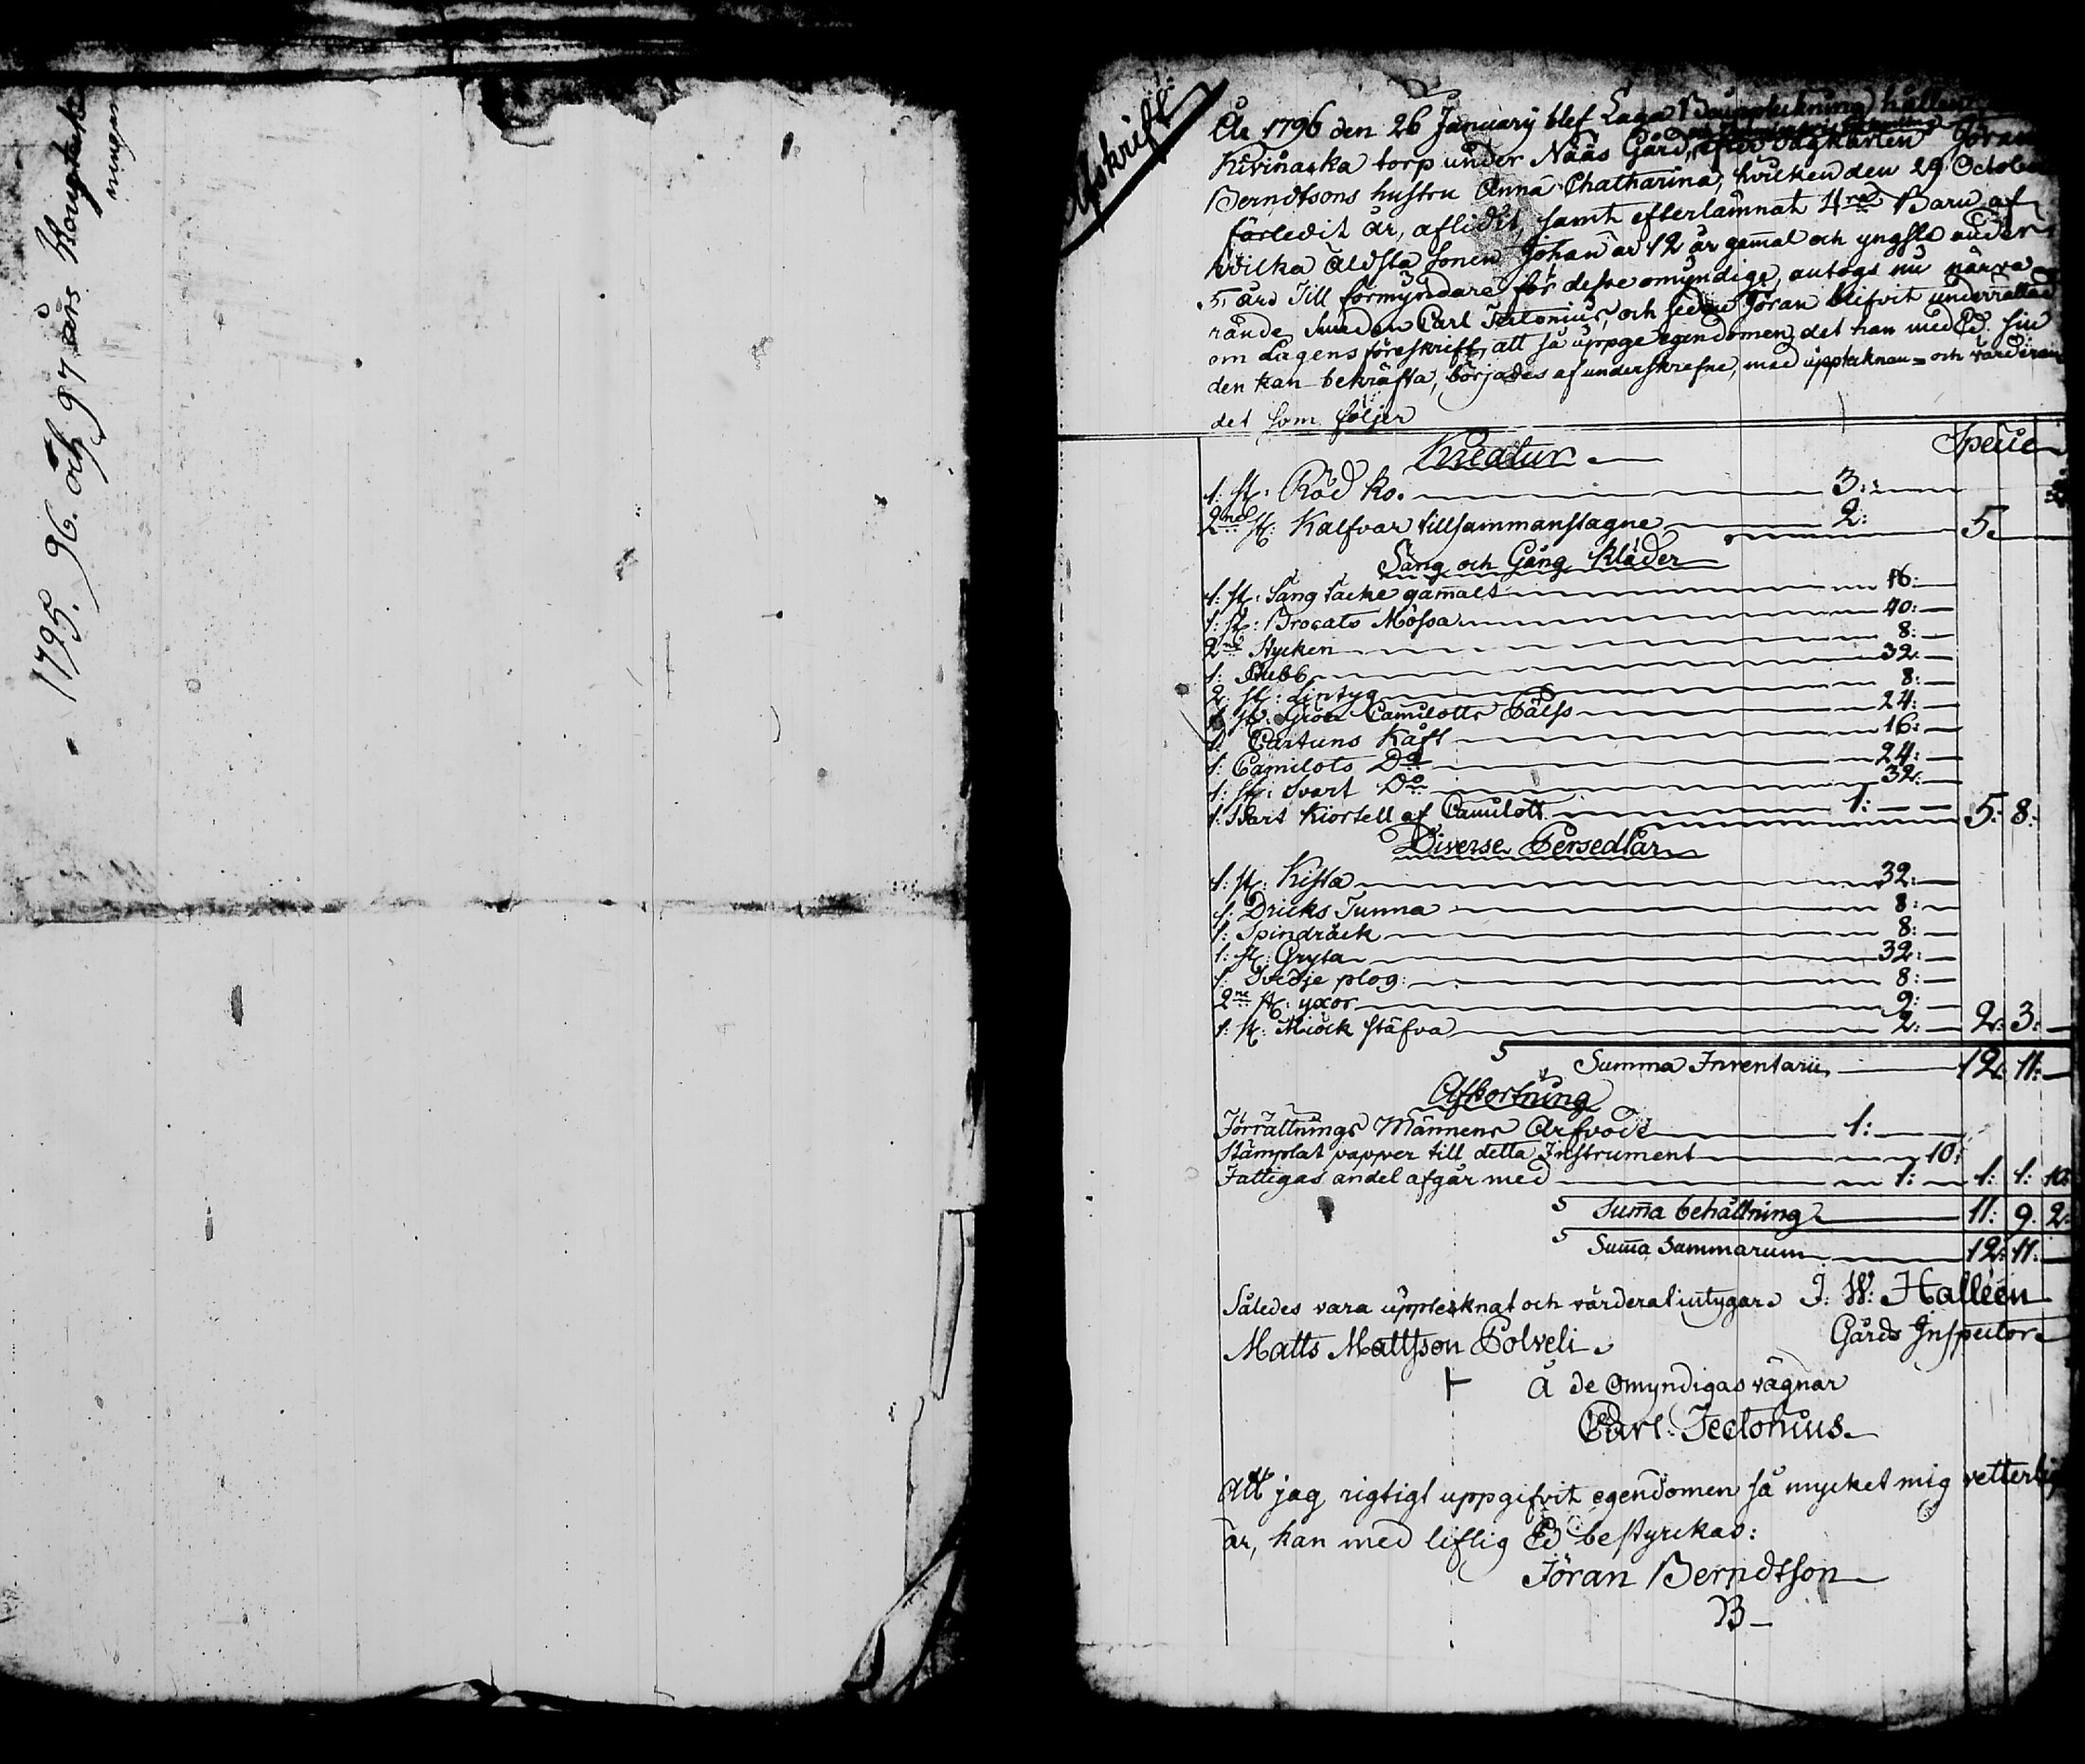 1795. 96. och 97 års
Afskrift
År 1796 den 26 January blef Laga Bouppteckning hållen
Kivinaska torp under Nääs Gård, efter Sågkarlen Jöran
Berndtsons hustru Anna Chatharina, hvilken den 29 October
förledit år, aflidit, samt efterlämnat 4ra Barn af
hvilka äldsta sonen Johan är 12 år gamal och yngsta under
5 år. Till förmyndare för desse omyndige, antogs nu närva
rande Smeden Carl Tectonius, och sedan Jöran blifvit underrättad
om Lagens föreskrift, att så uppge egendomen, det han med Ed. sin
den kan bekräfta, börjades af underskrefne, med uppteknan- och värderan
det som följer
Kreatur Specie
1: st: Röd ko. 3:
2ne st: Kalfvar tillsammanstagne 2: 5.
Säng och Gång Kläder
1: st: Säng täcke gamalt 16:
1: st: Brocats Mössa 40:
2ne Stycken 8:
1: Stubb 32:
2: st: Lintyg 8:
1 st: Grön Camilotts Päls 24:
1: Cartuns Kåft 16:
1: Camilots Do 24:
1: st: Svart Do 32:
1: Svart Kiortell af Camilott 1: 5: 8:
Diverse Persedlar
1: st: Kista 32:
1: Dricks Tunna 8:
1: Spindräck 8:
1: st: Gryta 32:
1: Svedje plog: 8:
2ne st: yxor 9:
1: st: Miölk stäfva 2: 2: 3:
S Summa Inventarii 12: 11:
Afkortning
Förrättnings Männens Arfvode 1:
Stämplat papper till detta Instrument 10:
Fattigas andel afgår med 1: 1: 1: 10:
S Summa behållning 11: 9. 2:
S Summa Summarum 12: 11:
Således vara upptecknat och värderat intygar J: W: Halléen
Matts Mattsson Polveli. Gårds Inspector
å de Omyndigas vägnar
Carl: Tectonius
Att jag rigtigt uppgifvit egendomen så mycket mig vetterlig
är, kan med liflig Ed bestyrckas:
Jöran Berndtson
B